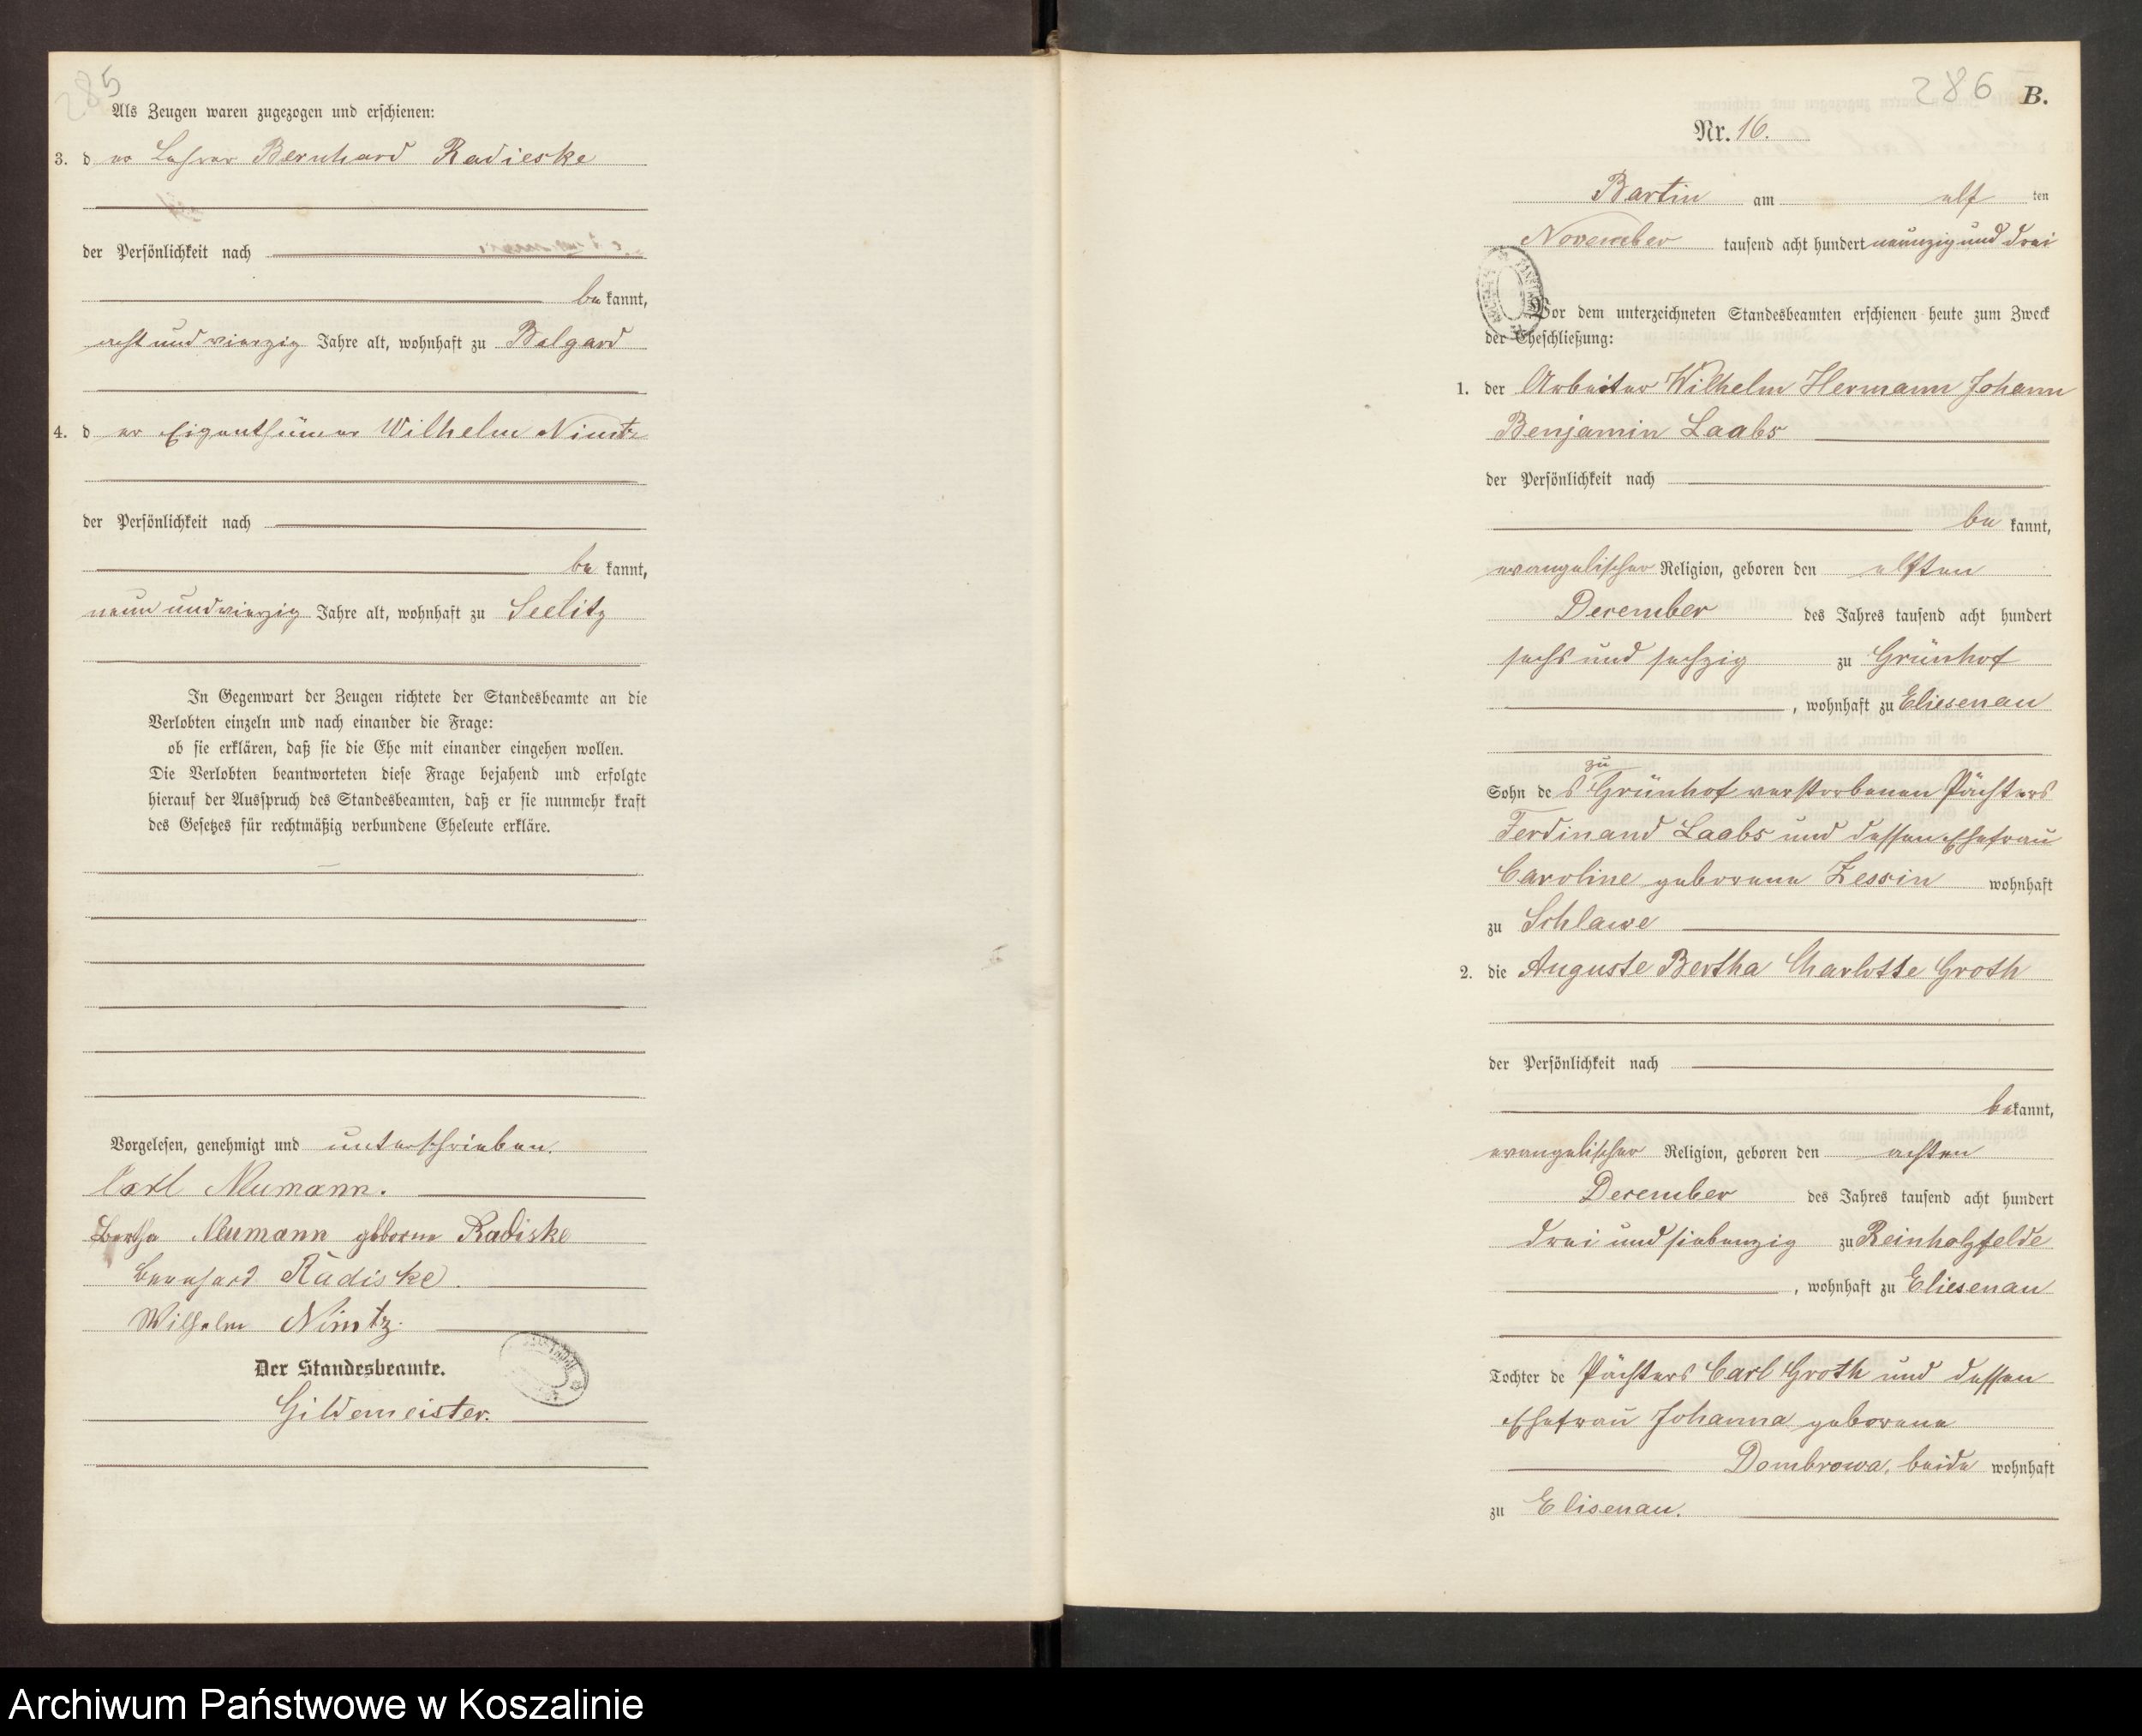 285
Als Zeugen waren zugezogen und erschienen:
3. d er Lehrer Bernhard Radieske
der Persönlichkeit nach
be kannt,
acht und vierzig Jahre alt, wohnhaft zu Belgard
4. d er Eigenthümer Wilhelm Nimtz
der Persönlichkeit nach
be kannt,
neun und vierzig Jahre alt, wohnhaft zu Seelitz
In Gegenwart der Zeugen richtete der Standesbeamte an die
Verlobten einzeln und nach einander die Frage:
ob sie erklären, daß sie die Ehe mit einander eingehen wollen.
Die Verlobten beantworteten diese Frage bejahend und erfolgte
hierauf der Ausspruch des Standesbeamten, daß er sie nunmehr kraft
des Gesetzes für rechtmäßig verbundene Eheleute erkläre.
Vorgelesen, genehmigt und unterschrieben.
Carl Neumann.
Bertha Neumann geborne Radiske
Bernhard Radiske.
Wilhelm Nimtz.
Der Standesbeamte.
Gildemeister.
286 B.
Nr. 16.
Bartin am elf ten
November tausend acht hundert neunzig und drei
Vor dem unterzeichneten Standesbeamten erschienen heute zum Zweck
der Eheschließung:
1. der Arbeiter Wilhelm Hermann Johann
Benjamin Laabs
der Persönlichkeit nach
be kannt,
evangelischer Religion, geboren den elften
December des Jahres tausend acht hundert
sechs und sechzig zu Grünhof
, wohnhaft zu Eliesenau
zu
Sohn de s Grünhof verstorbenen Pächters
Ferdinand Laabs und dessen Ehefrau
Caroline geborene Zessin wohnhaft
zu Schlawe
2. die Auguste Bertha Charlotte Groth
der Persönlichkeit nach
bekannt,
evangelischer Religion, geboren den achten
December des Jahres tausend acht hundert
drei und siebenzig zu Reinholzfelde
, wohnhaft zu Eliesenau
Tochter de Pächters Carl Groth und dessen
Ehefrau Johanna geborene
Dombrowa, beide wohnhaft
zu Elisenau.
Archiwum Państwowe w Koszalinie